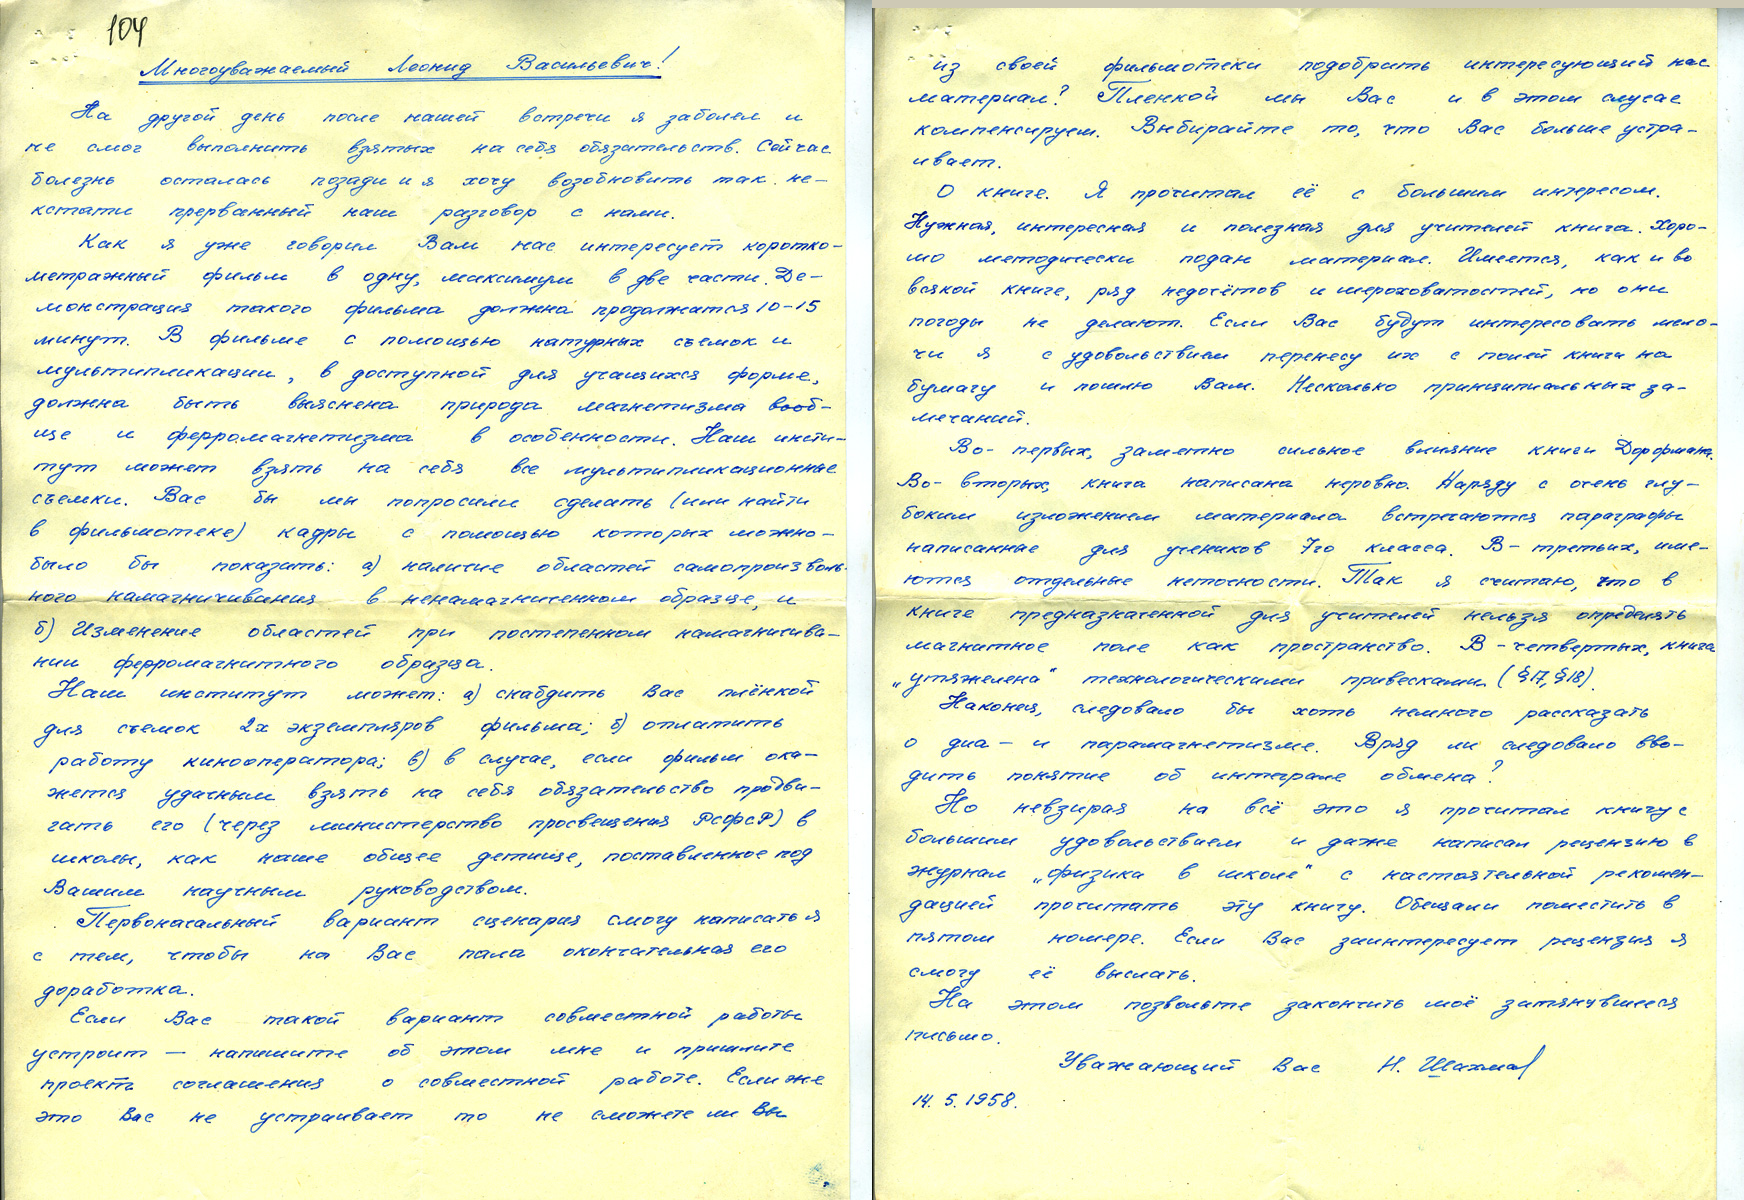 104
Многоуважаемый Леонид Васильевич!
На другой день после нашей встречи я заболел и
не смог выполнить взятых на себя обязательств. Сейчас
болезнь осталась позади и я хочу возобновить так не-
кстати прерванный наш разговор с нами.
Как я уже говорил Вам нас интересует коротко-
метражный фильм в одну, максимум в две части. Де-
монстрация такого фильма должна продолжатся 10-15
минут. В фильме с помощью натурных съемок и
мультипликации, в доступной для учащихся форме,
должна быть выяснена природа магнетизма вооб-
ще и ферромагнетизма в особенности. Наш инсти-
тут может взять на себя все мультипликационные
съемки. Вас бы мы попросили сделать (или найти
в фильмотеке) кадры с помощью которых можно-
было бы показать: а) наличие областей самопроизволь-
ного намагничивания в ненамагниченном образце, и
б) Изменение областей при постепенном намагничива-
нии ферромагнитного образца.
Наш институт может: а) снабдить Вас плёнкой
для съемок 2х экземпляров фильма; б) оплатить
работу кинооператора; в) в случае, если фильм ока-
жется удачным взять на себя обязательство продви-
гать его (через министерство просвещения РСФСР) в
школы, как наше общее детище, поставленное под
Вашим научным руководством.
Первоначальный вариант сценария смогу написать я
с тем, чтобы на Вас пала окончательная его
доработка.
Если Вас такой вариант совместной работы
устроит — напишите об этом мне и пришлите
проект соглашения о совместной работе. Если же
это Вас не устраивает то не сможете ли Вы
из своей фильмотеки подобрать интересующий нас
материал? Пленкой мы Вас и в этом случае
компенсируем. Выбирайте то, что Вас больше устра-
ивает.
О книге. Я прочитал её с большим интересом.
Нужная, интересная и полезная для учителей книга. Хоро-
шо методически подан материал. Имеется, как и во
всякой книге, ряд недочётов и шероховатостей, но они
погоды не делают. Если Вас будут интересовать мело-
чи я с удовольствием перенесу их с полей книги на
бумагу и пошлю Вам. Несколько принципиальных за-
мечаний.
Во-первых, заметно сильное влияние книги Дорфмана.
Во-вторых, книга написана неровно. Наряду с очень глу-
боким изложением материала встречаются параграфы
написанные для учеников 7го класса. В-третьих, име-
ются отдельные неточности. Так я считаю, что в
книге предназначенной для учителей нельзя определять
магнитное поле как пространство. В-четвертых, книга
„утяжелена" технологическими привесками (§17, §18).
Наконец, следовало бы хоть немного рассказать
о диа- и парамагнетизме. Вряд ли следовало вво-
дить понятие об интеграле обмена?
Но невзирая на всё это я прочитал книгу с
большим удовольствием и даже написал рецензию в
журнал „физика в школе" с настоятельной рекомен-
дацией прочитать эту книгу. Обещали поместить в
пятом номере. Если Вас заинтересует рецензия я
смогу её выслать.
На этом позвольте закончить моё затянувшееся
письмо.
Уважающий Вас Н. Шахмаев
14.5.1958.